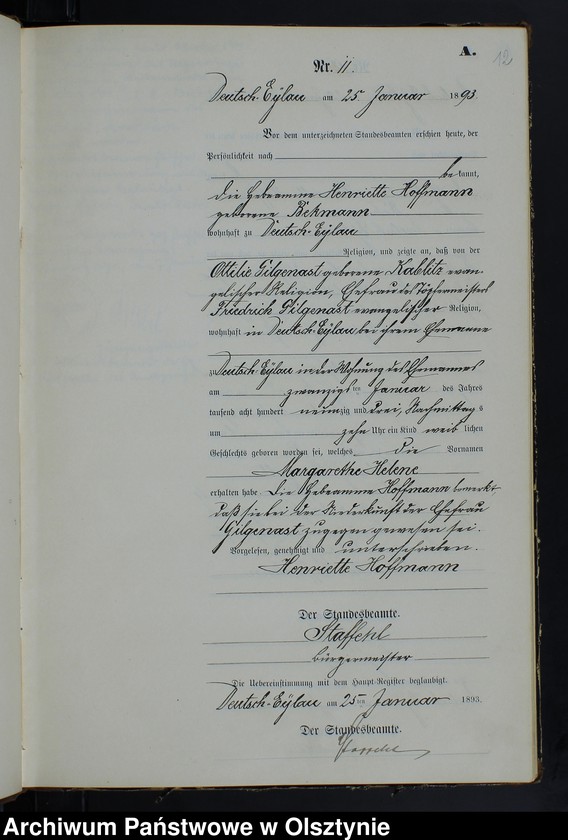 A.
12
Nr. 11.
Deutsch-Eylau am 25. Januar 1893.
Vor dem unterzeichneten Standesbeamten erschien heute, der
Persönlichkeit nach
bekannt,
die Hebeamme Henriette Hoffmann
geborene Bekmann
wohnhaft zu Deutsch-Eylau
Religion, und zeigte an, daß von der
Ottilie Gilgenast geborene Kablitz evan-
gelischer Religion, Ehefrau des Töpfermeisters
Friedrich Gilgenast evangelischer Religion,
wohnhaft in Deutsch-Eylau bei ihrem Ehemanne
zu Deutsch-Eylau in der Wohnung des Ehemannes
am zwanzigsten Januar des Jahres
tausend acht hundert neunzig und drei, Nachmittags
um zehn Uhr ein Kind weiblichen
Geschlechts geboren worden sei, welches die Vornamen
Margarethe Helene
erhalten habe. Die Hebeamme Hoffmann bemerkt
daß sie bei der Niederkunft der Ehefrau
Gilgenast zugegen gewesen sei.
Vorgelesen, genehmigt und unterschrieben.
Henriette Hoffmann
Der Standesbeamte.
Staffehl
Bürgermeister
Die Uebereinstimmung mit dem Haupt-Register beglaubigt.
Deutsch-Eylau am 25ten Januar 1893.
Der Standesbeamte.
Staffehl
Archiwum Państwowe w Olsztynie